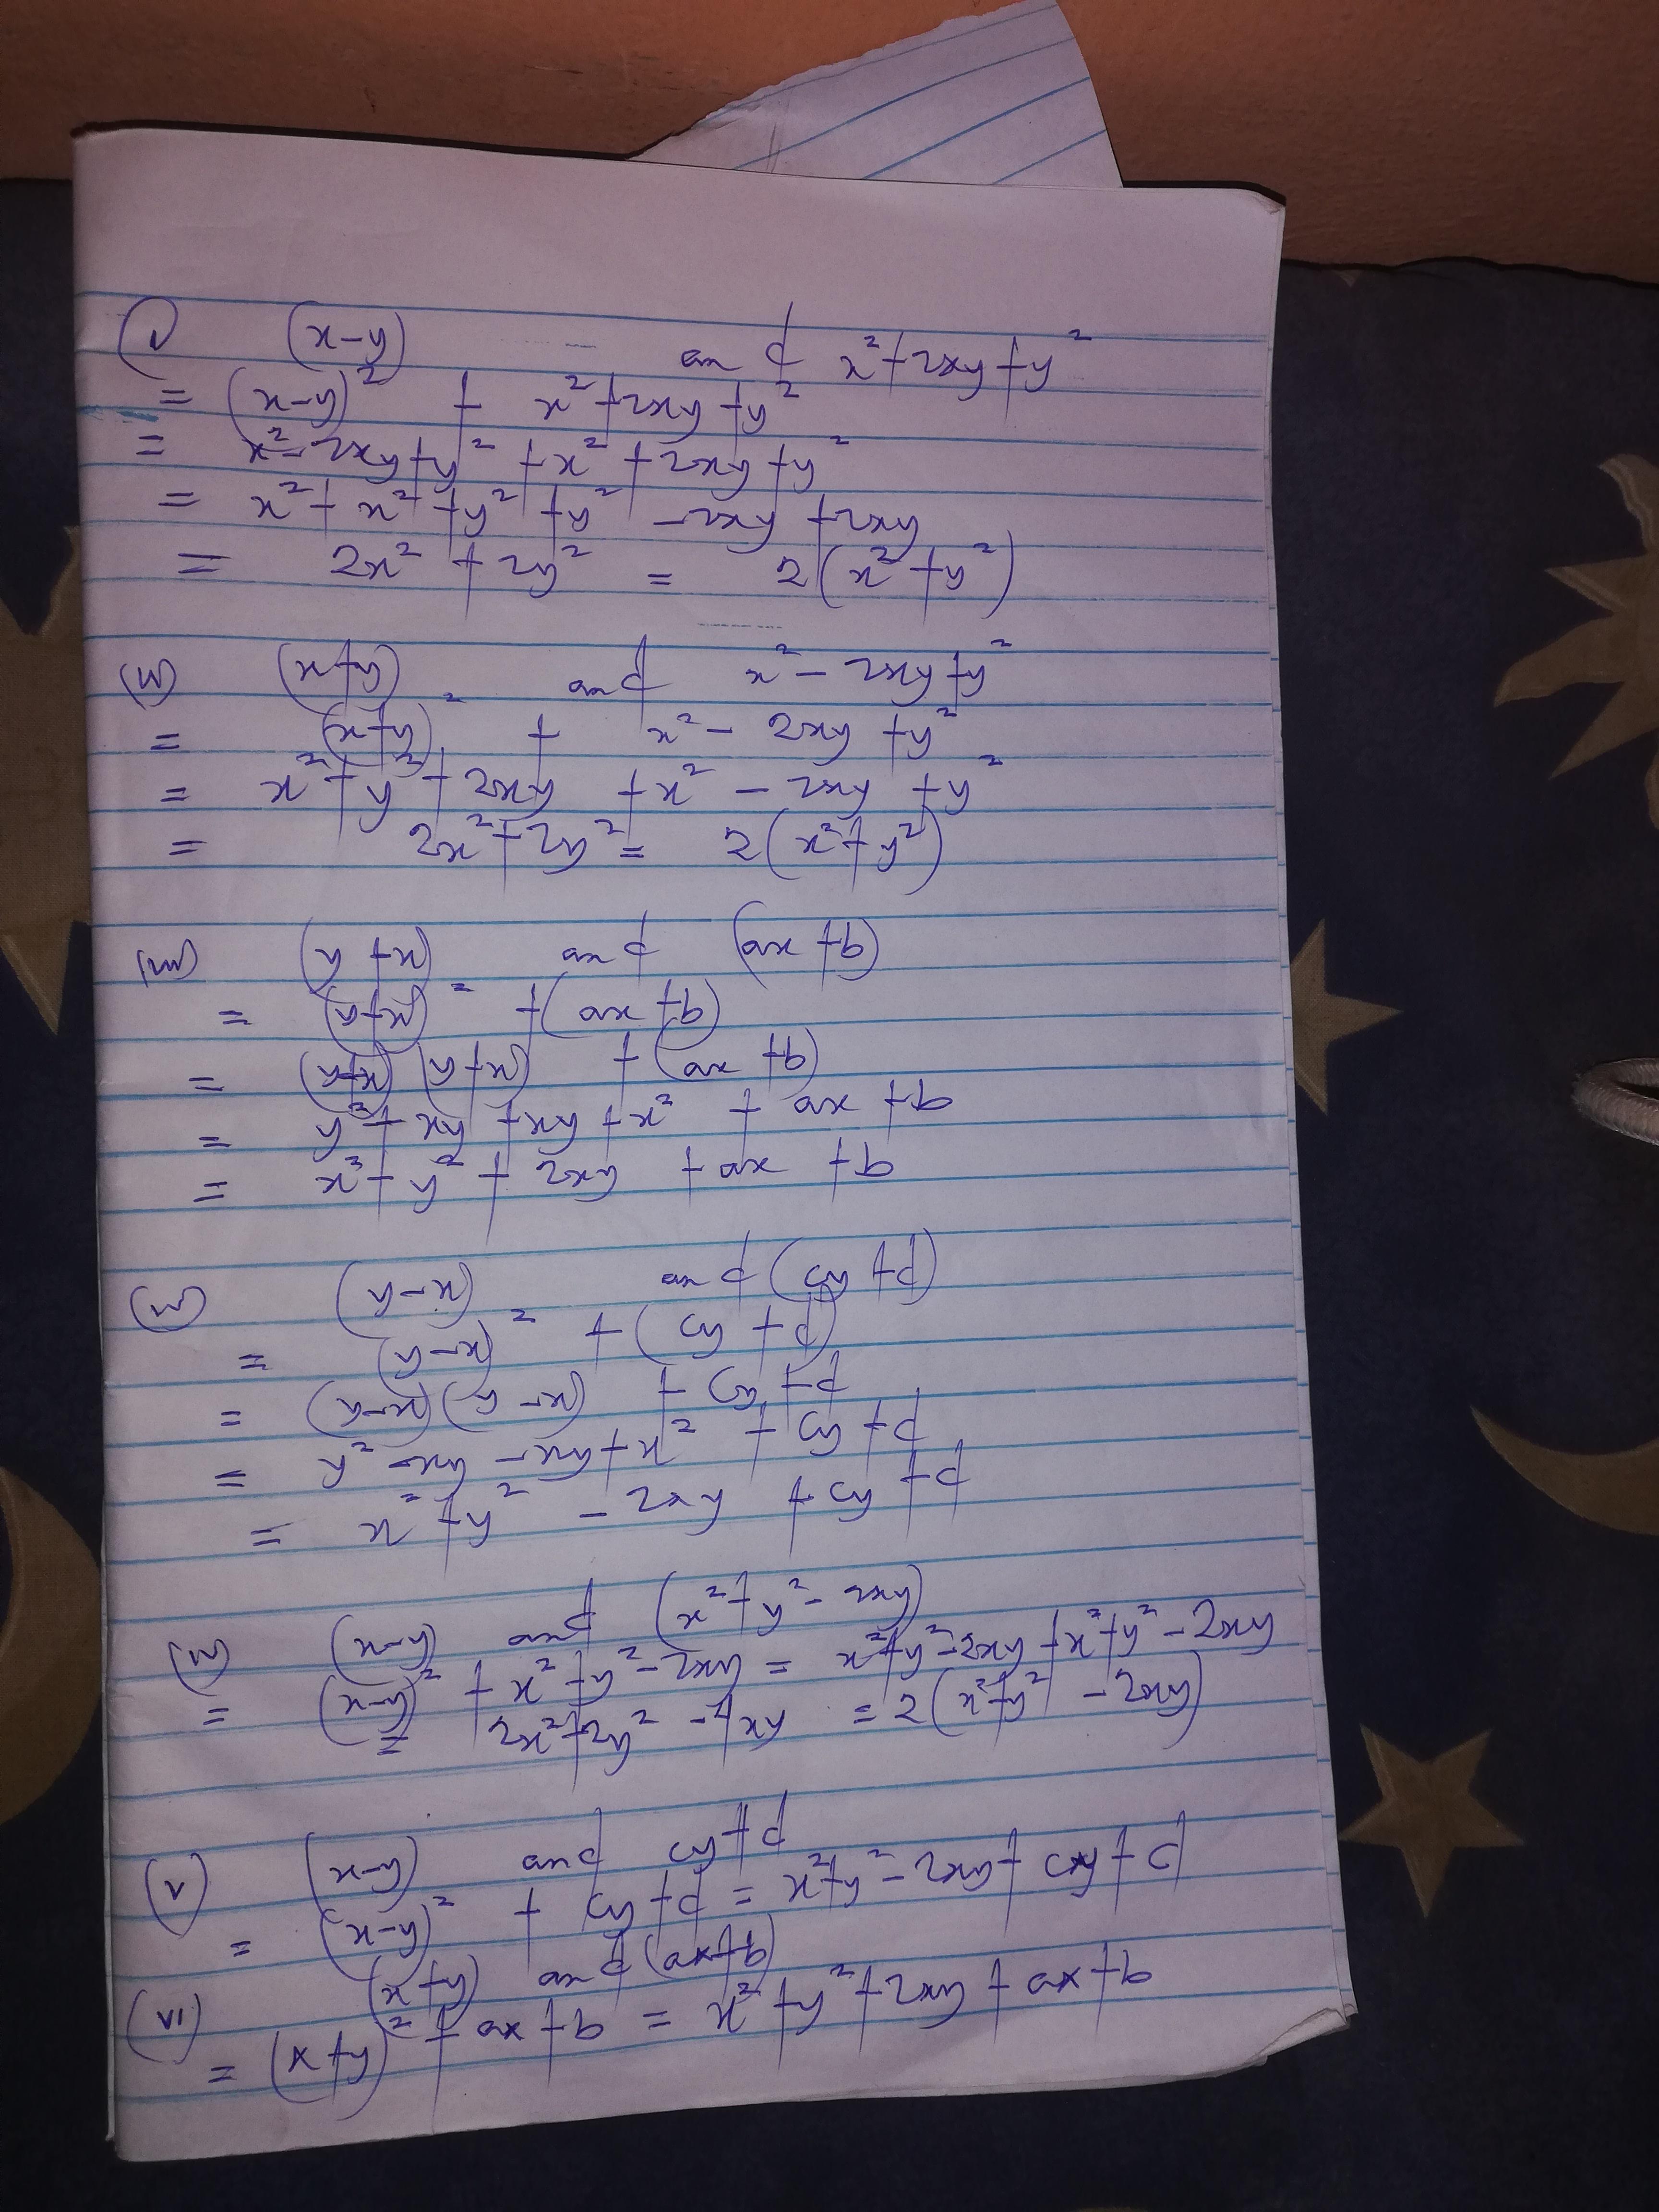 (i) (x-y) and x²+2xy+y²
= (x-y)² + x²+2xy+y²
= x²-2xy+y²+x²+2xy+y²
= x²+x²+y²+y²-2xy+2xy
= 2x²+2y² = 2(x²+y²)
(ii) (x+y) and x²-2xy+y²
= (x+y)² + x²-2xy+y²
= x²+y²+2xy+x²-2xy+y²
= 2x²+2y² = 2(x²+y²)
(iii) (x+y) and (ax+b)
= (x+y)² + (ax+b)
= (x+y)(x+y) + (ax+b)
= y²+xy+xy+x²+ax+b
= x²+y²+2xy+ax+b
(x-y) and (cy+d)
= (x-y)² + (cy+d)
= (x-y)(x-y) + cy+d
= y²-xy-xy+x²+cy+d
= x²+y²-2xy+cy+d
(x-y) and (x²+y²-2xy)
= (x-y)²+x²+y²-2xy = x²+y²-2xy+x²+y²-2xy
= 2x²+2y²-4xy = 2(x²+y²-2xy)
(v) (x-y) and cy+d
= (x-y)² + cy+d = x²+y²-2xy+cy+d
(vi) (x+y) and (ax+b)
= (x+y)²+ax+b = x²+y²+2xy+ax+b